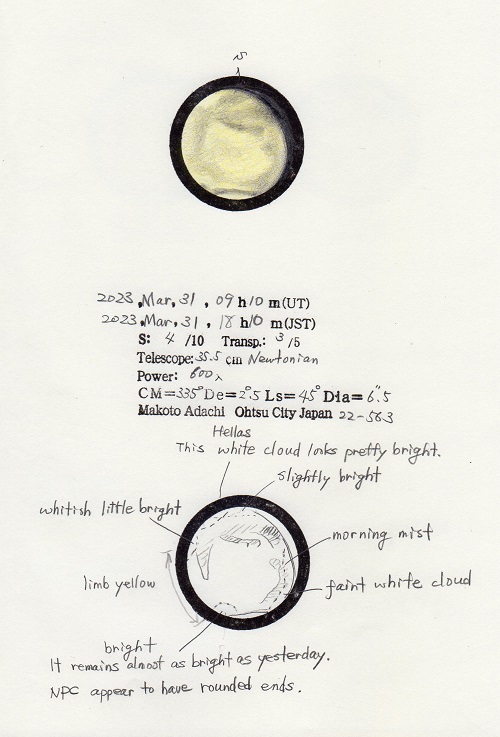 S
2023, Mar, 31, 09 h 10 m (UT)
2023, Mar, 31, 18 h 10 m (JST)
S: 4 /10 Transp.: 3 /5
Telescope: 35.5 cm Newtonian
Power: 600x
CM=335° De=2°.5 Ls=45° Dia=6".5
Makoto Adachi Ohtsu City Japan 22-563
Hellas
This white cloud looks pretty bright.
slightly bright
whitish little bright
morning mist
limb yellow
faint white cloud
bright
It remains almost as bright as yesterday.
NPC appear to have rounded ends.